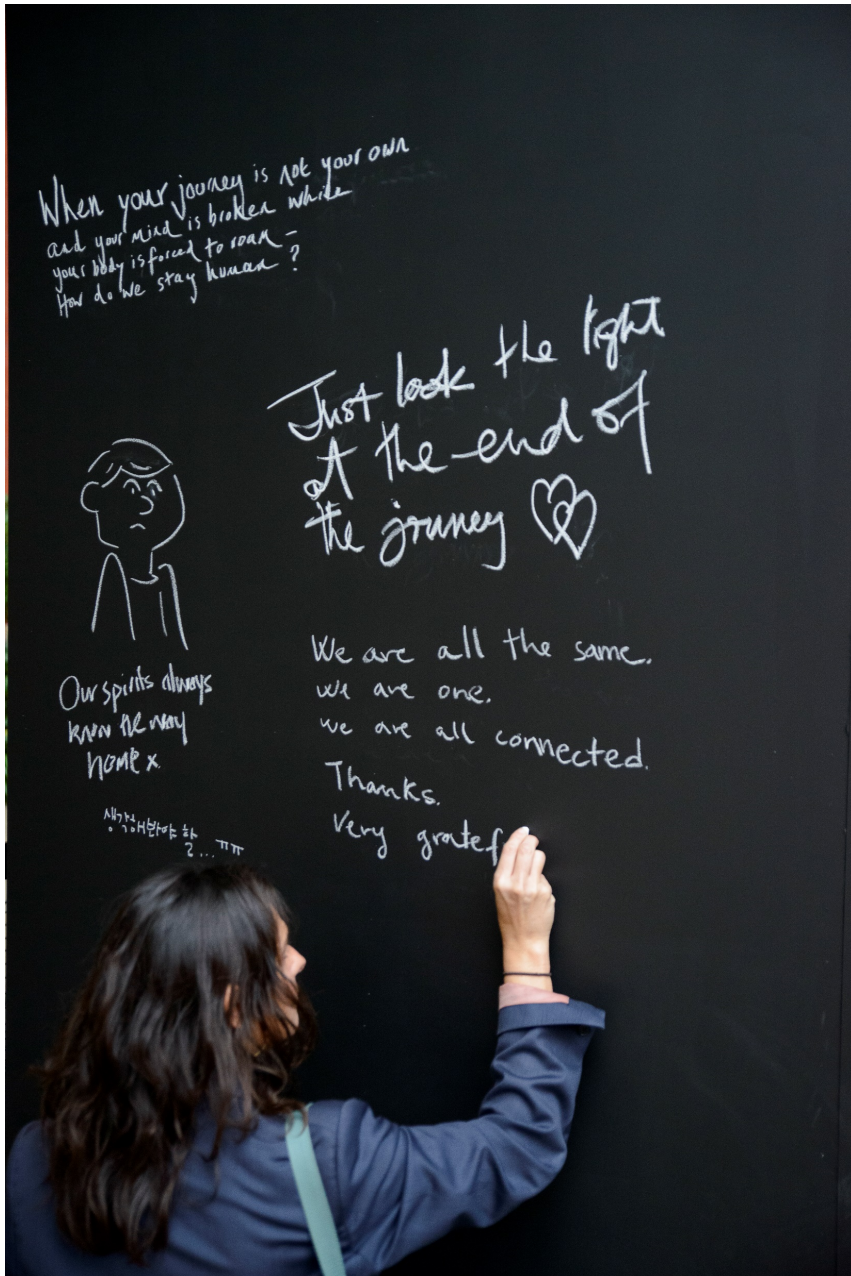 When your journey is not your own
and your mind is broken while
your body is forced to roam –
How do we stay human?
Just look the light
at the end of
the jouney
Our spirits always
know the way
home x
We are all the same.
we are one.
we are all connected.
Thanks.
Very gratef
생각해봐야 할
? ... ㅠㅠ